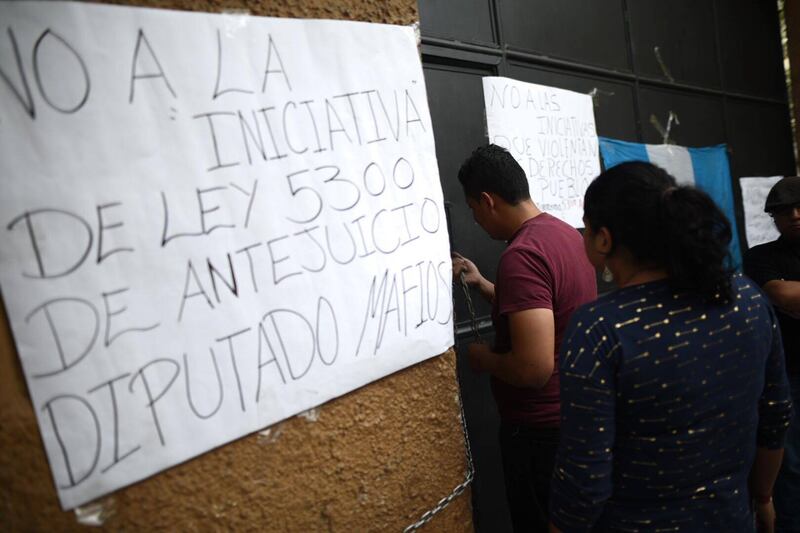 NO A "LA
INICIATIVA"
DE LEY 5300
DE ANTEJUICIO
DIPUTADO MAFIOSO
NO A LAS
INICIATIVAS
QUE VIOLENTAN
DERECHOS
PUEBLO